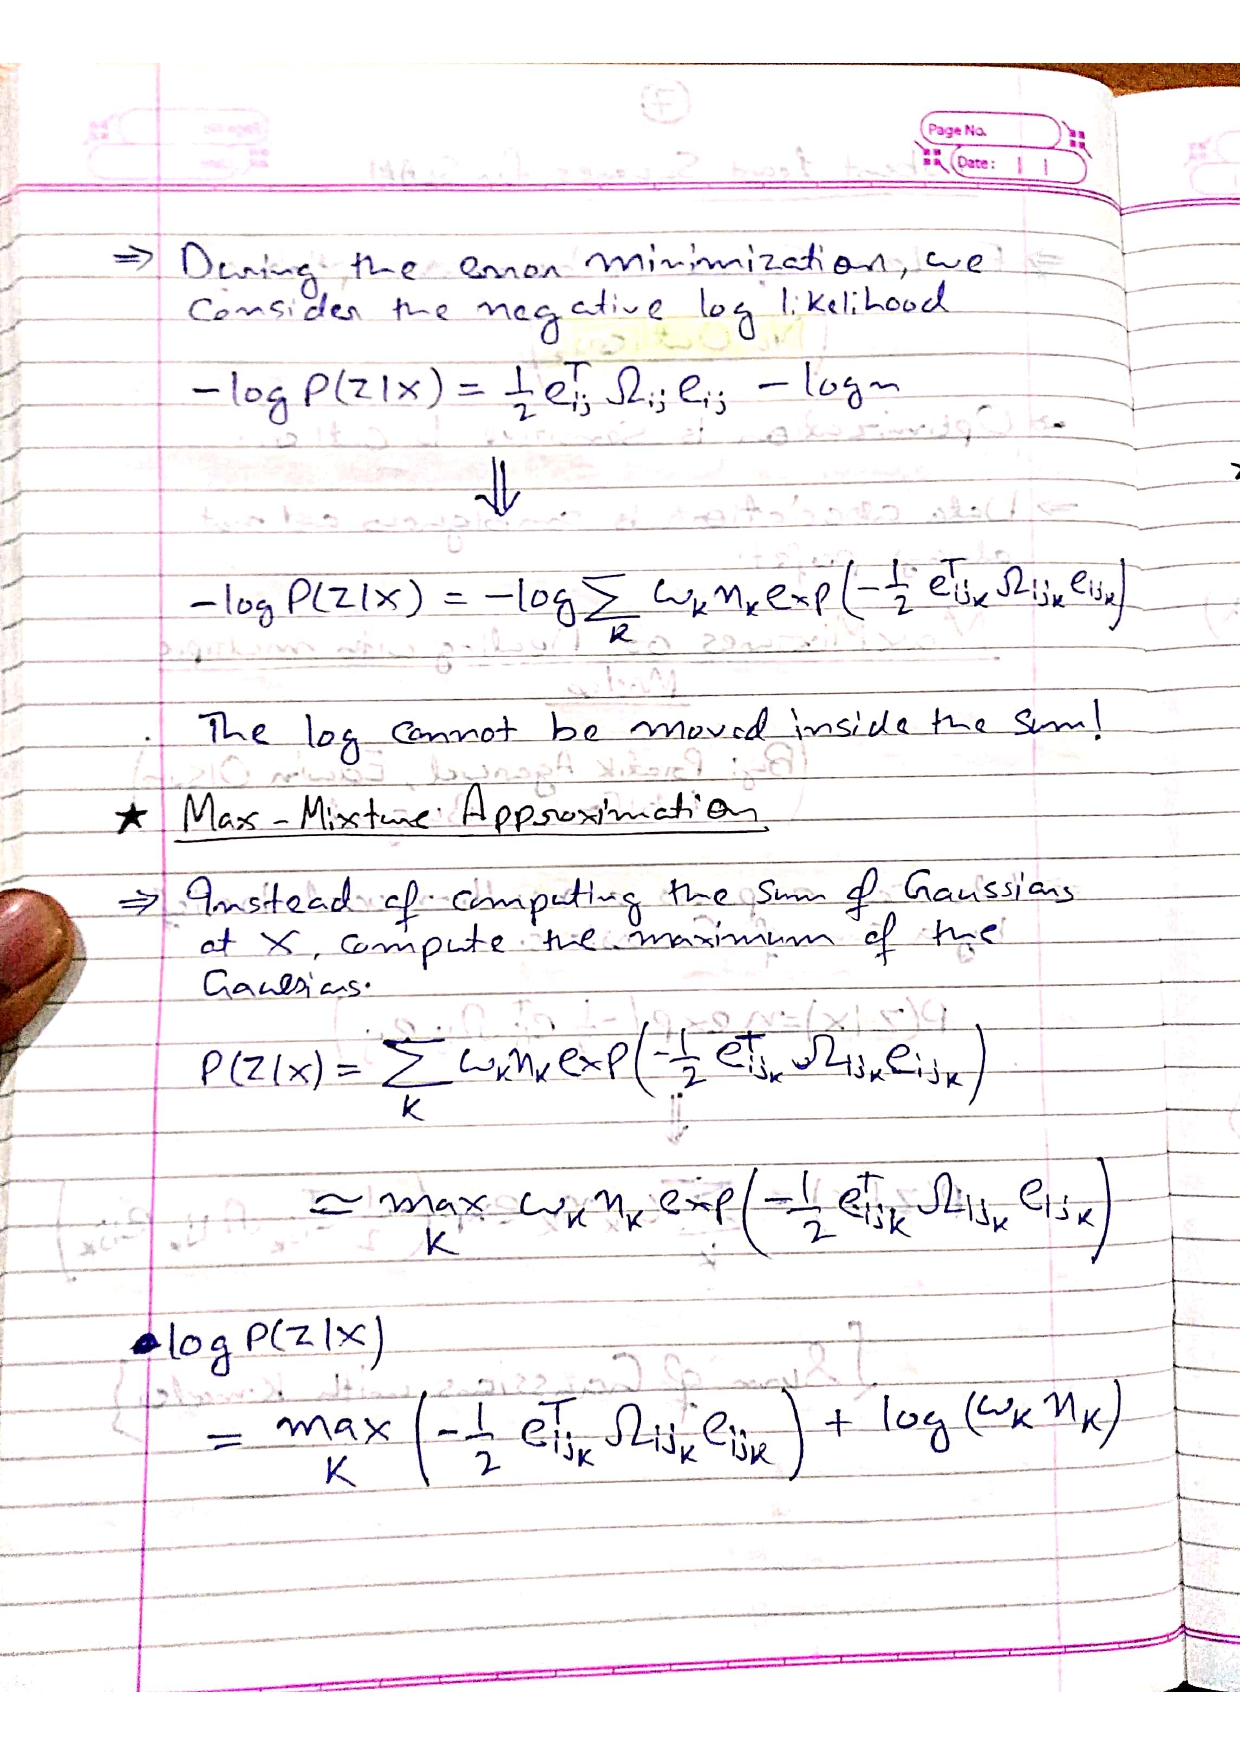 Page No.
Date:
⇒ During the error minimization, we
consider the negative log likelihood
-log P(z|x) = 1/2 e^T_ij Ω_ij e_ij - log η
⇓
-log P(z|x) = -log Σ_k w_k η_k exp(-1/2 e^T_ijk Ω_ijk e_ijk)
The log cannot be moved inside the sum!
★ Max-Mixture Approximation
⇒ Instead of computing the sum of Gaussians
at X, compute the maximum of the
Gaussians.
P(z|x) = Σ_K w_k η_k exp(-1/2 e^T_ijk Ω_ijk e_ijk)
≃ max_K w_k η_k exp(-1/2 e^T_ijk Ω_ijk e_ijk)
log P(z|x)
= max_K (-1/2 e^T_ijk Ω_ijk e_ijk) + log (w_k η_k)